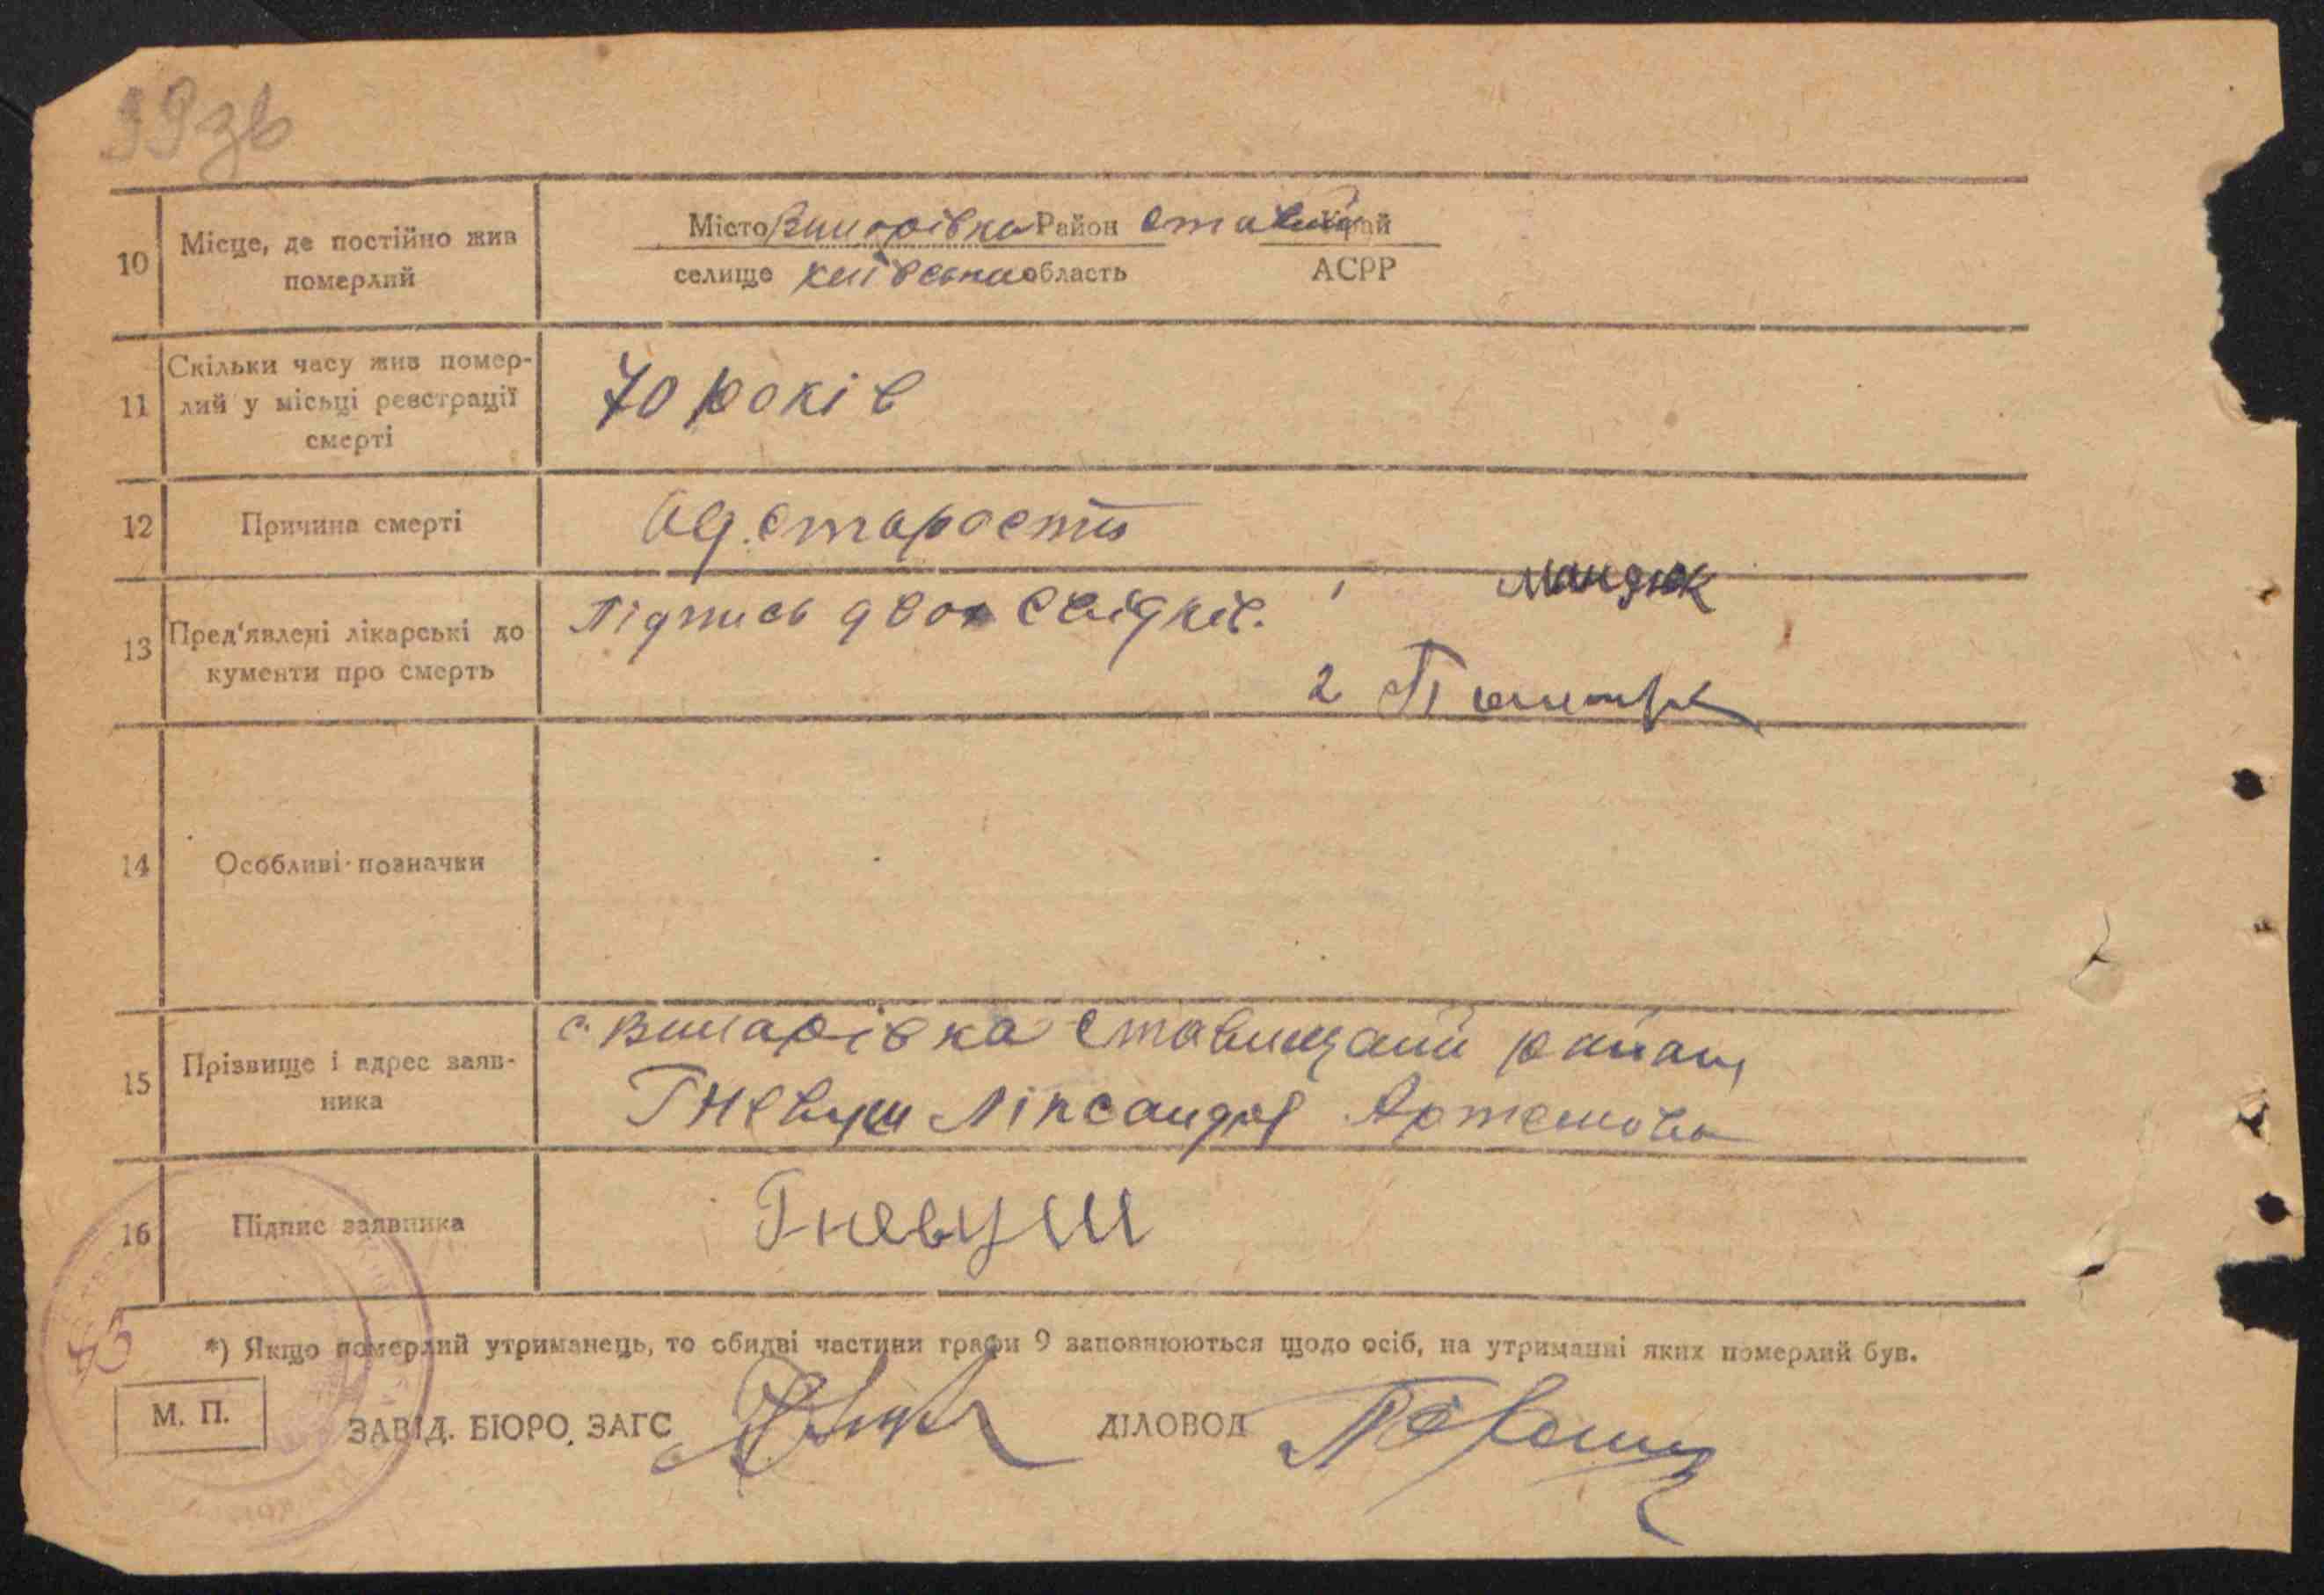 99 зв
10 Місце, де постійно жив померлий
Місто Винорівка Район Став Край
селище київська область АСРР
11 Скільки часу жив помер-
лий у місьці реєстрації
смерті
70 років
12 Причина смерті
од. старости
13 Пред'явлені лікарські до
кументи про смерть
Підпись двох свідків. 1 Мандюк
2
14 Особливі позначки
с. Винарівка Ставищан району
15 Прізвище і адрес заяв-
ника
Гневуш Ліксандра Артемова
16 Підпис заявника
Гневуш
*) Якщо померлий утриманець, то обидві частини графи 9 заповнюються щодо осіб, на утриманні яких померлий був.
М. П.
ЗАВІД. БЮРО ЗАГС ДІЛОВОД